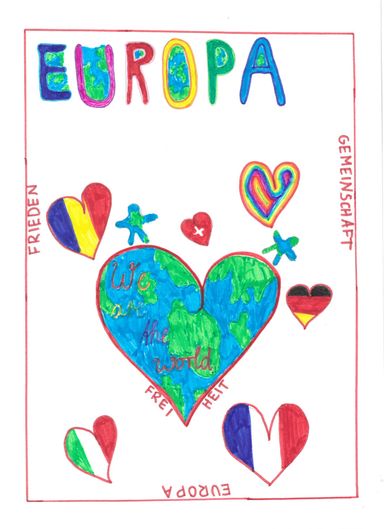 EUROPA
GEMEINSCHAFT
FRIEDEN
We
are
the
world
FREIHEIT
EUROPA